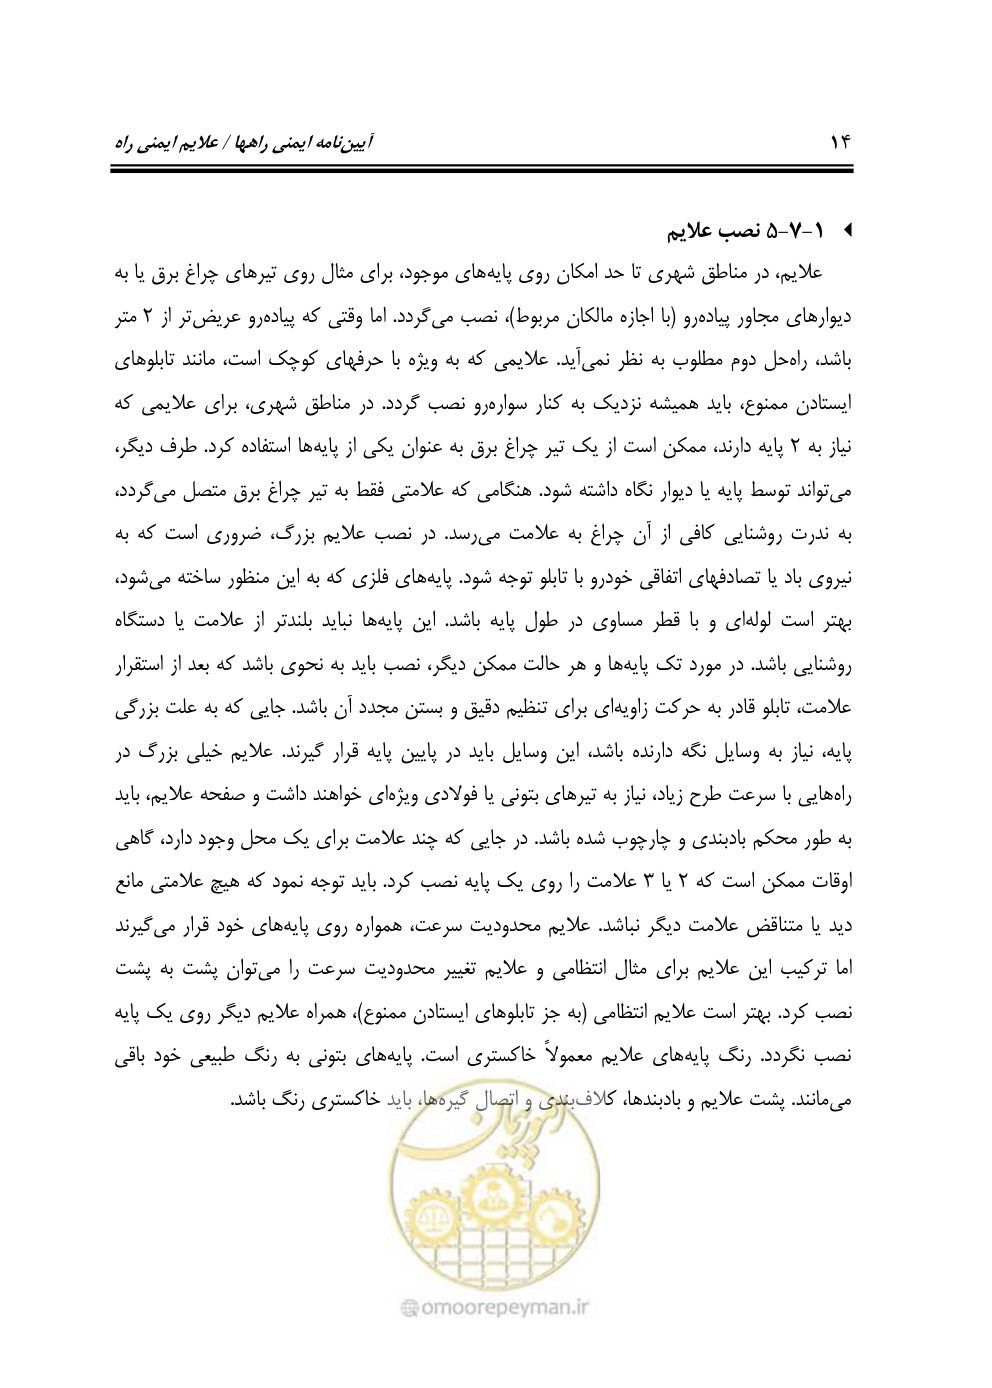 ۱۴
آیین‌نامه ایمنی راهها / علایم ایمنی راه
۱-۷-۵ نصب علایم
علایم، در مناطق شهری تا حد امکان روی پایه‌های موجود، برای مثال روی تیرهای چراغ برق یا به
دیوارهای مجاور پیاده‌رو (با اجازه مالکان مربوط)، نصب می‌گردد. اما وقتی که پیاده‌رو عریض‌تر از ۲ متر
باشد، راه‌حل دوم مطلوب به نظر نمی‌آید. علایمی که به ویژه با حرفهای کوچک است، مانند تابلوهای
ایستادن ممنوع، باید همیشه نزدیک به کنار سواره‌رو نصب گردد. در مناطق شهری، برای علایمی که
نیاز به ۲ پایه دارند، ممکن است از یک تیر چراغ برق به عنوان یکی از پایه‌ها استفاده کرد. طرف دیگر،
می‌تواند توسط پایه یا دیوار نگاه داشته شود. هنگامی که علامتی فقط به تیر چراغ برق متصل می‌گردد،
به ندرت روشنایی کافی از آن چراغ به علامت می‌رسد. در نصب علایم بزرگ، ضروری است که به
نیروی باد یا تصادفهای اتفاقی خودرو با تابلو توجه شود. پایه‌های فلزی که به این منظور ساخته می‌شود،
بهتر است لوله‌ای و با قطر مساوی در طول پایه باشد. این پایه‌ها نباید بلندتر از علامت یا دستگاه
روشنایی باشد. در مورد تک پایه‌ها و هر حالت ممکن دیگر، نصب باید به نحوی باشد که بعد از استقرار
علامت، تابلو قادر به حرکت زاویه‌ای برای تنظیم دقیق و بستن مجدد آن باشد. جایی که به علت بزرگی
پایه، نیاز به وسایل نگه دارنده باشد، این وسایل باید در پایین پایه قرار گیرند. علایم خیلی بزرگ در
راه‌هایی با سرعت طرح زیاد، نیاز به تیرهای بتونی یا فولادی ویژه‌ای خواهند داشت و صفحه علایم، باید
به طور محکم بادبندی و چارچوب شده باشد. در جایی که چند علامت برای یک محل وجود دارد، گاهی
اوقات ممکن است که ۲ یا ۳ علامت را روی یک پایه نصب کرد. باید توجه نمود که هیچ علامتی مانع
دید یا متناقض علامت دیگر نباشد. علایم محدودیت سرعت، همواره روی پایه‌های خود قرار می‌گیرند
اما ترکیب این علایم برای مثال انتظامی و علایم تغییر محدودیت سرعت را می‌توان پشت به پشت
نصب کرد. بهتر است علایم انتظامی (به جز تابلوهای ایستادن ممنوع)، همراه علایم دیگر روی یک پایه
نصب نگردد. رنگ پایه‌های علایم معمولاً خاکستری است. پایه‌های بتونی به رنگ طبیعی خود باقی
می‌مانند. پشت علایم و بادبندها، کلاف‌بندی و اتصال گیره‌ها، باید خاکستری رنگ باشد.
امور پیمان
@omoorepeyman.ir